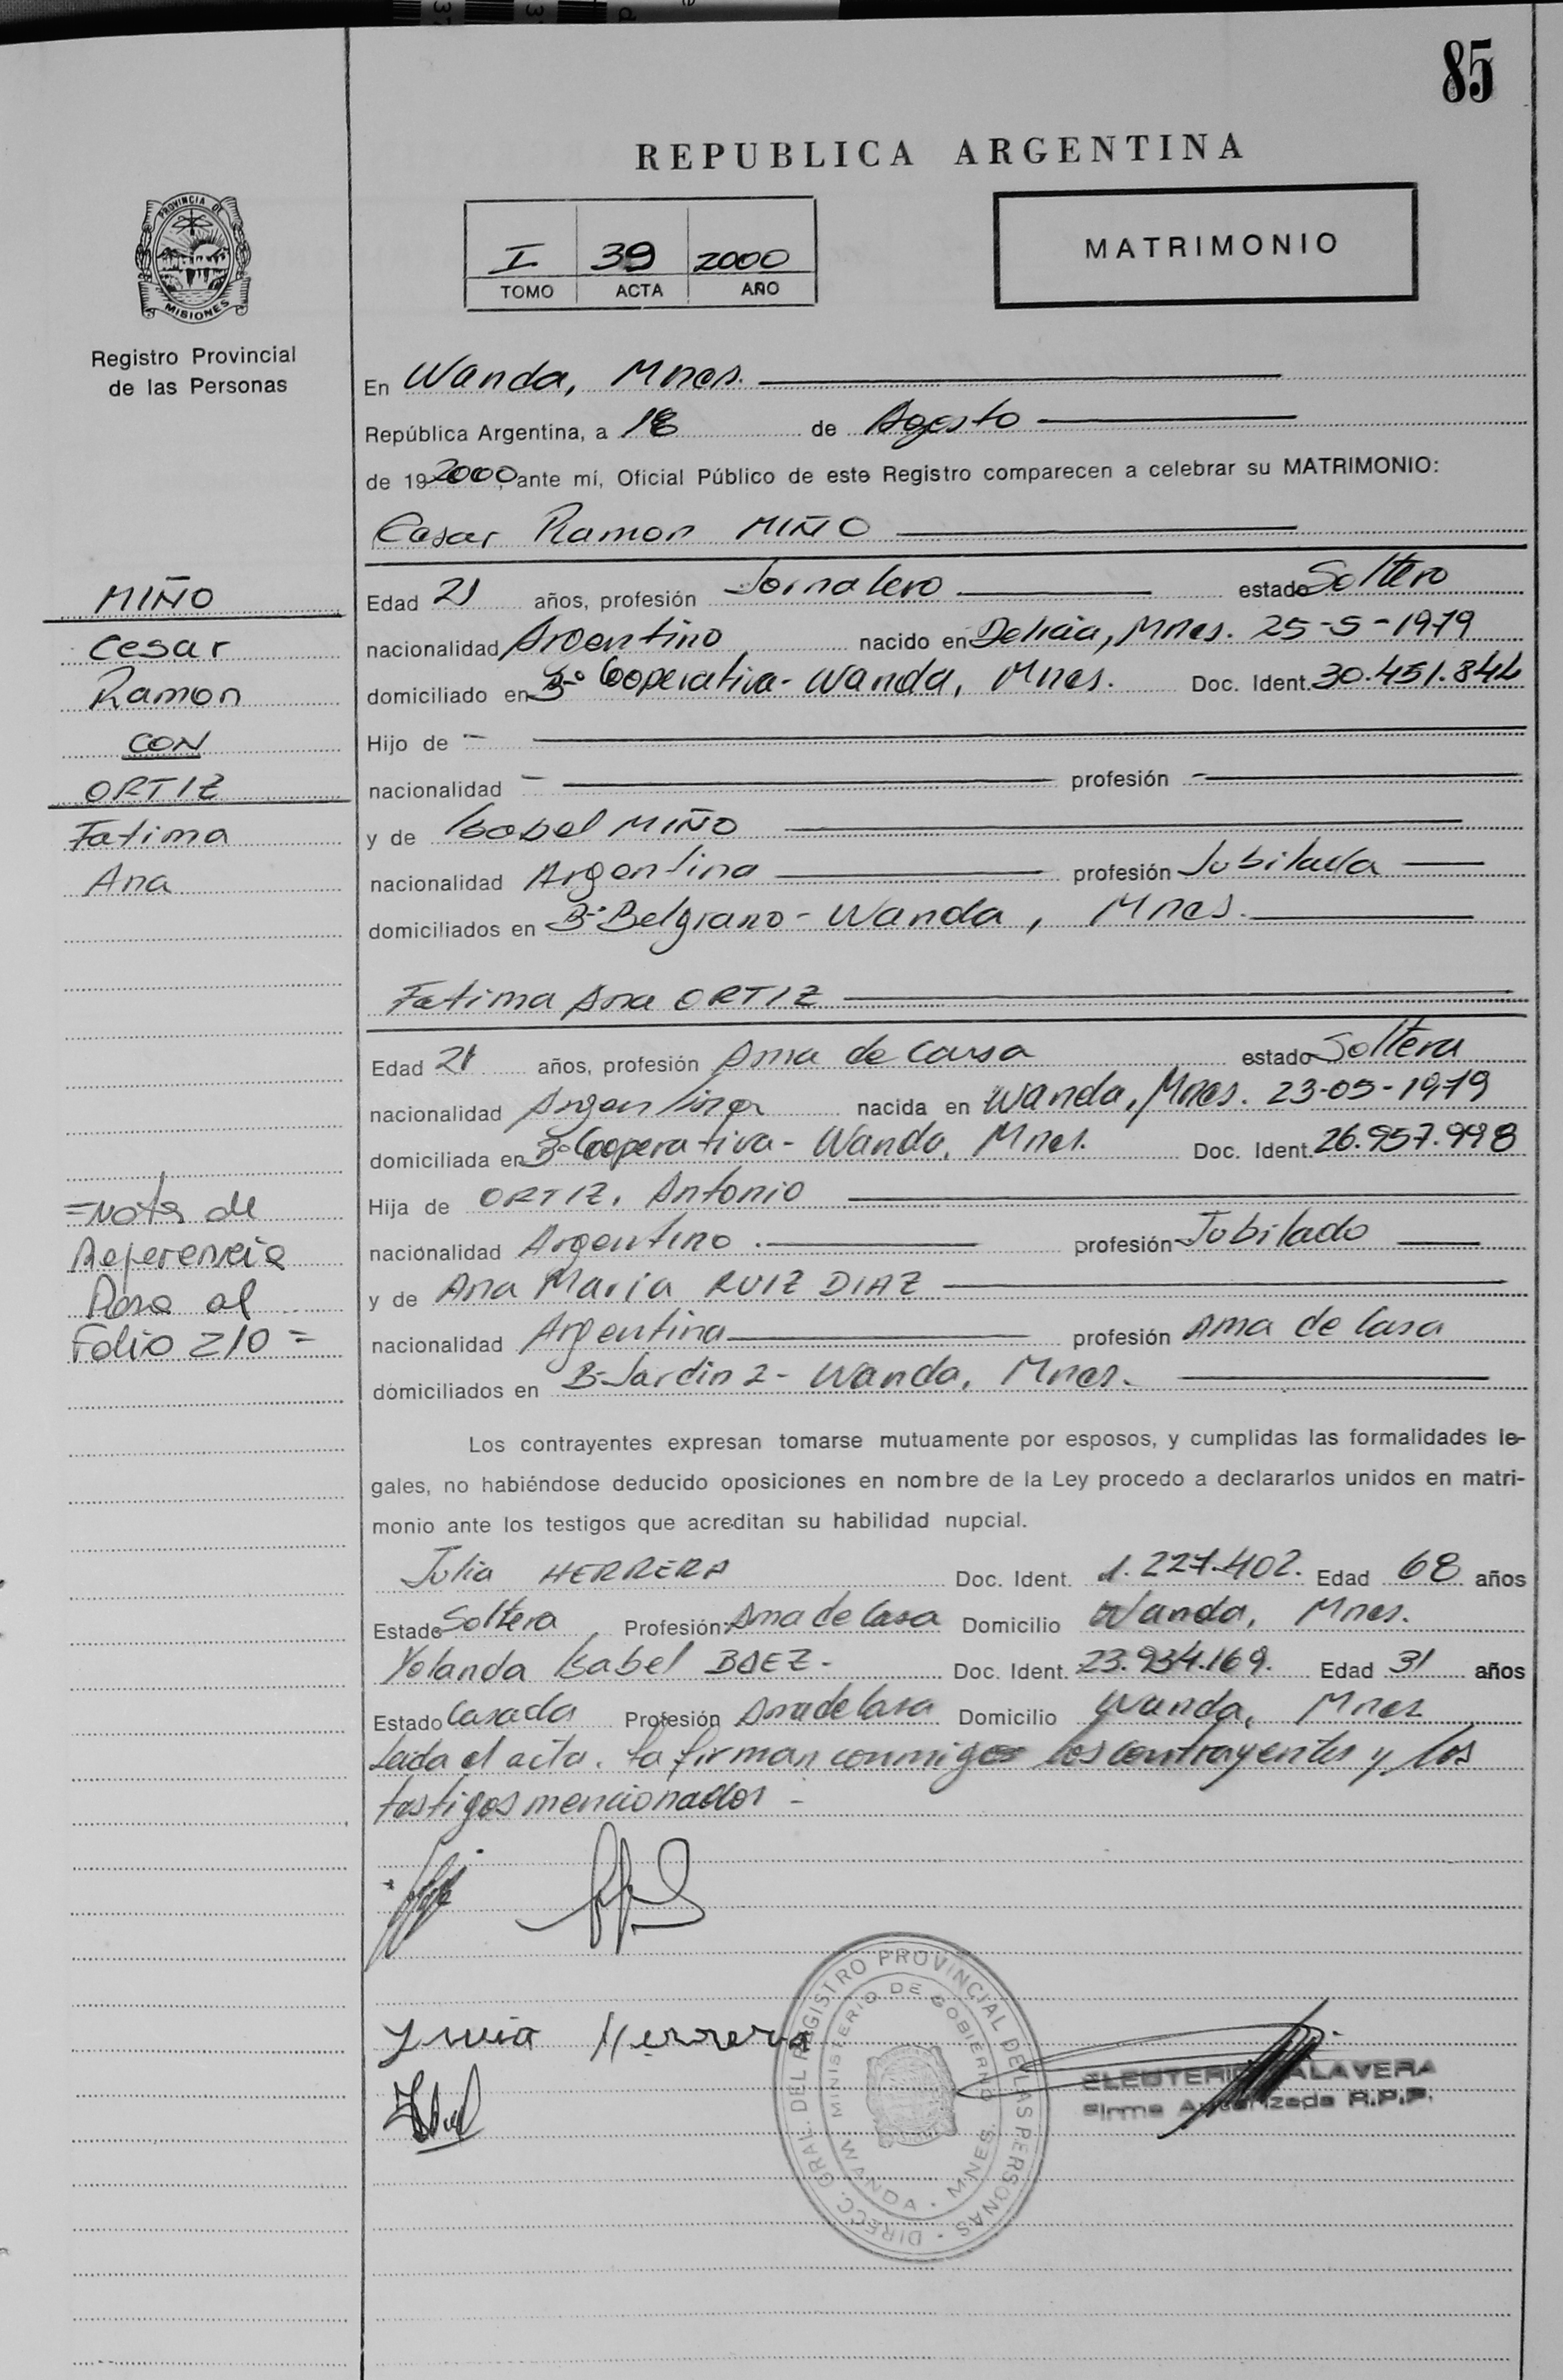 85
REPUBLICA ARGENTINA
I 39 2000
TOMO ACTA AÑO
MATRIMONIO
PROVINCIA DE
MISIONES
Registro Provincial
de las Personas
En Wanda, Mnes.
República Argentina, a 18 de Agosto
de 19 2000, ante mí, Oficial Público de este Registro comparecen a celebrar su MATRIMONIO:
Cesar Ramon MIÑO
Edad 21 años, profesión Jornalero estado Soltero
nacionalidad Argentino nacido en Delicia, Mnes. 25-5-1979
domiciliado en Bº Cooperativa - Wanda, Mnes. Doc. Ident. 30.451.844
Hijo de -
nacionalidad - profesión -
y de Isabel MIÑO
nacionalidad Argentina profesión Jubilada
domiciliados en Bº Belgrano - Wanda, Mnes.
Fatima Ana ORTIZ
Edad 21 años, profesión Ama de Casa estado Soltera
nacionalidad Argentina nacida en Wanda, Mnes. 23-05-1979
domiciliada en Bº Cooperativa - Wanda, Mnes. Doc. Ident. 26.957.998
Hija de ORTIZ, Antonio
nacionalidad Argentino profesión Jubilado
y de Ana Maria RUIZ DIAZ
nacionalidad Argentina profesión Ama de Casa
domiciliados en B- Jardin 2 - Wanda, Mnes.
Los contrayentes expresan tomarse mutuamente por esposos, y cumplidas las formalidades le-
gales, no habiéndose deducido oposiciones en nombre de la Ley procedo a declararlos unidos en matri-
monio ante los testigos que acreditan su habilidad nupcial.
Julia HERRERA Doc. Ident. 1.227.402. Edad 68 años
Estado Soltera Profesión: Ama de Casa Domicilio Wanda, Mnes.
Yolanda Isabel BAEZ - Doc. Ident. 23.934.169. Edad 31 años
Estado Casada Profesión Ama de Casa Domicilio Wanda, Mnes
Leida el acta. La firman conmigo los contrayentes y los
testigos mencionados -
Julia Herrera
DIRECC. GRAL. DEL REGISTRO PROVINCIAL DE LAS PERSONAS
MINISTERIO DE GOBIERNO
WANDA - MNES.
ELEUTERIO TALAVERA
Firma Autorizada R.P.P.
MIÑO
Cesar
Ramon
CON
ORTIZ
Fatima
Ana
=Nota de
Referencia
Pasa al
Folio 210=